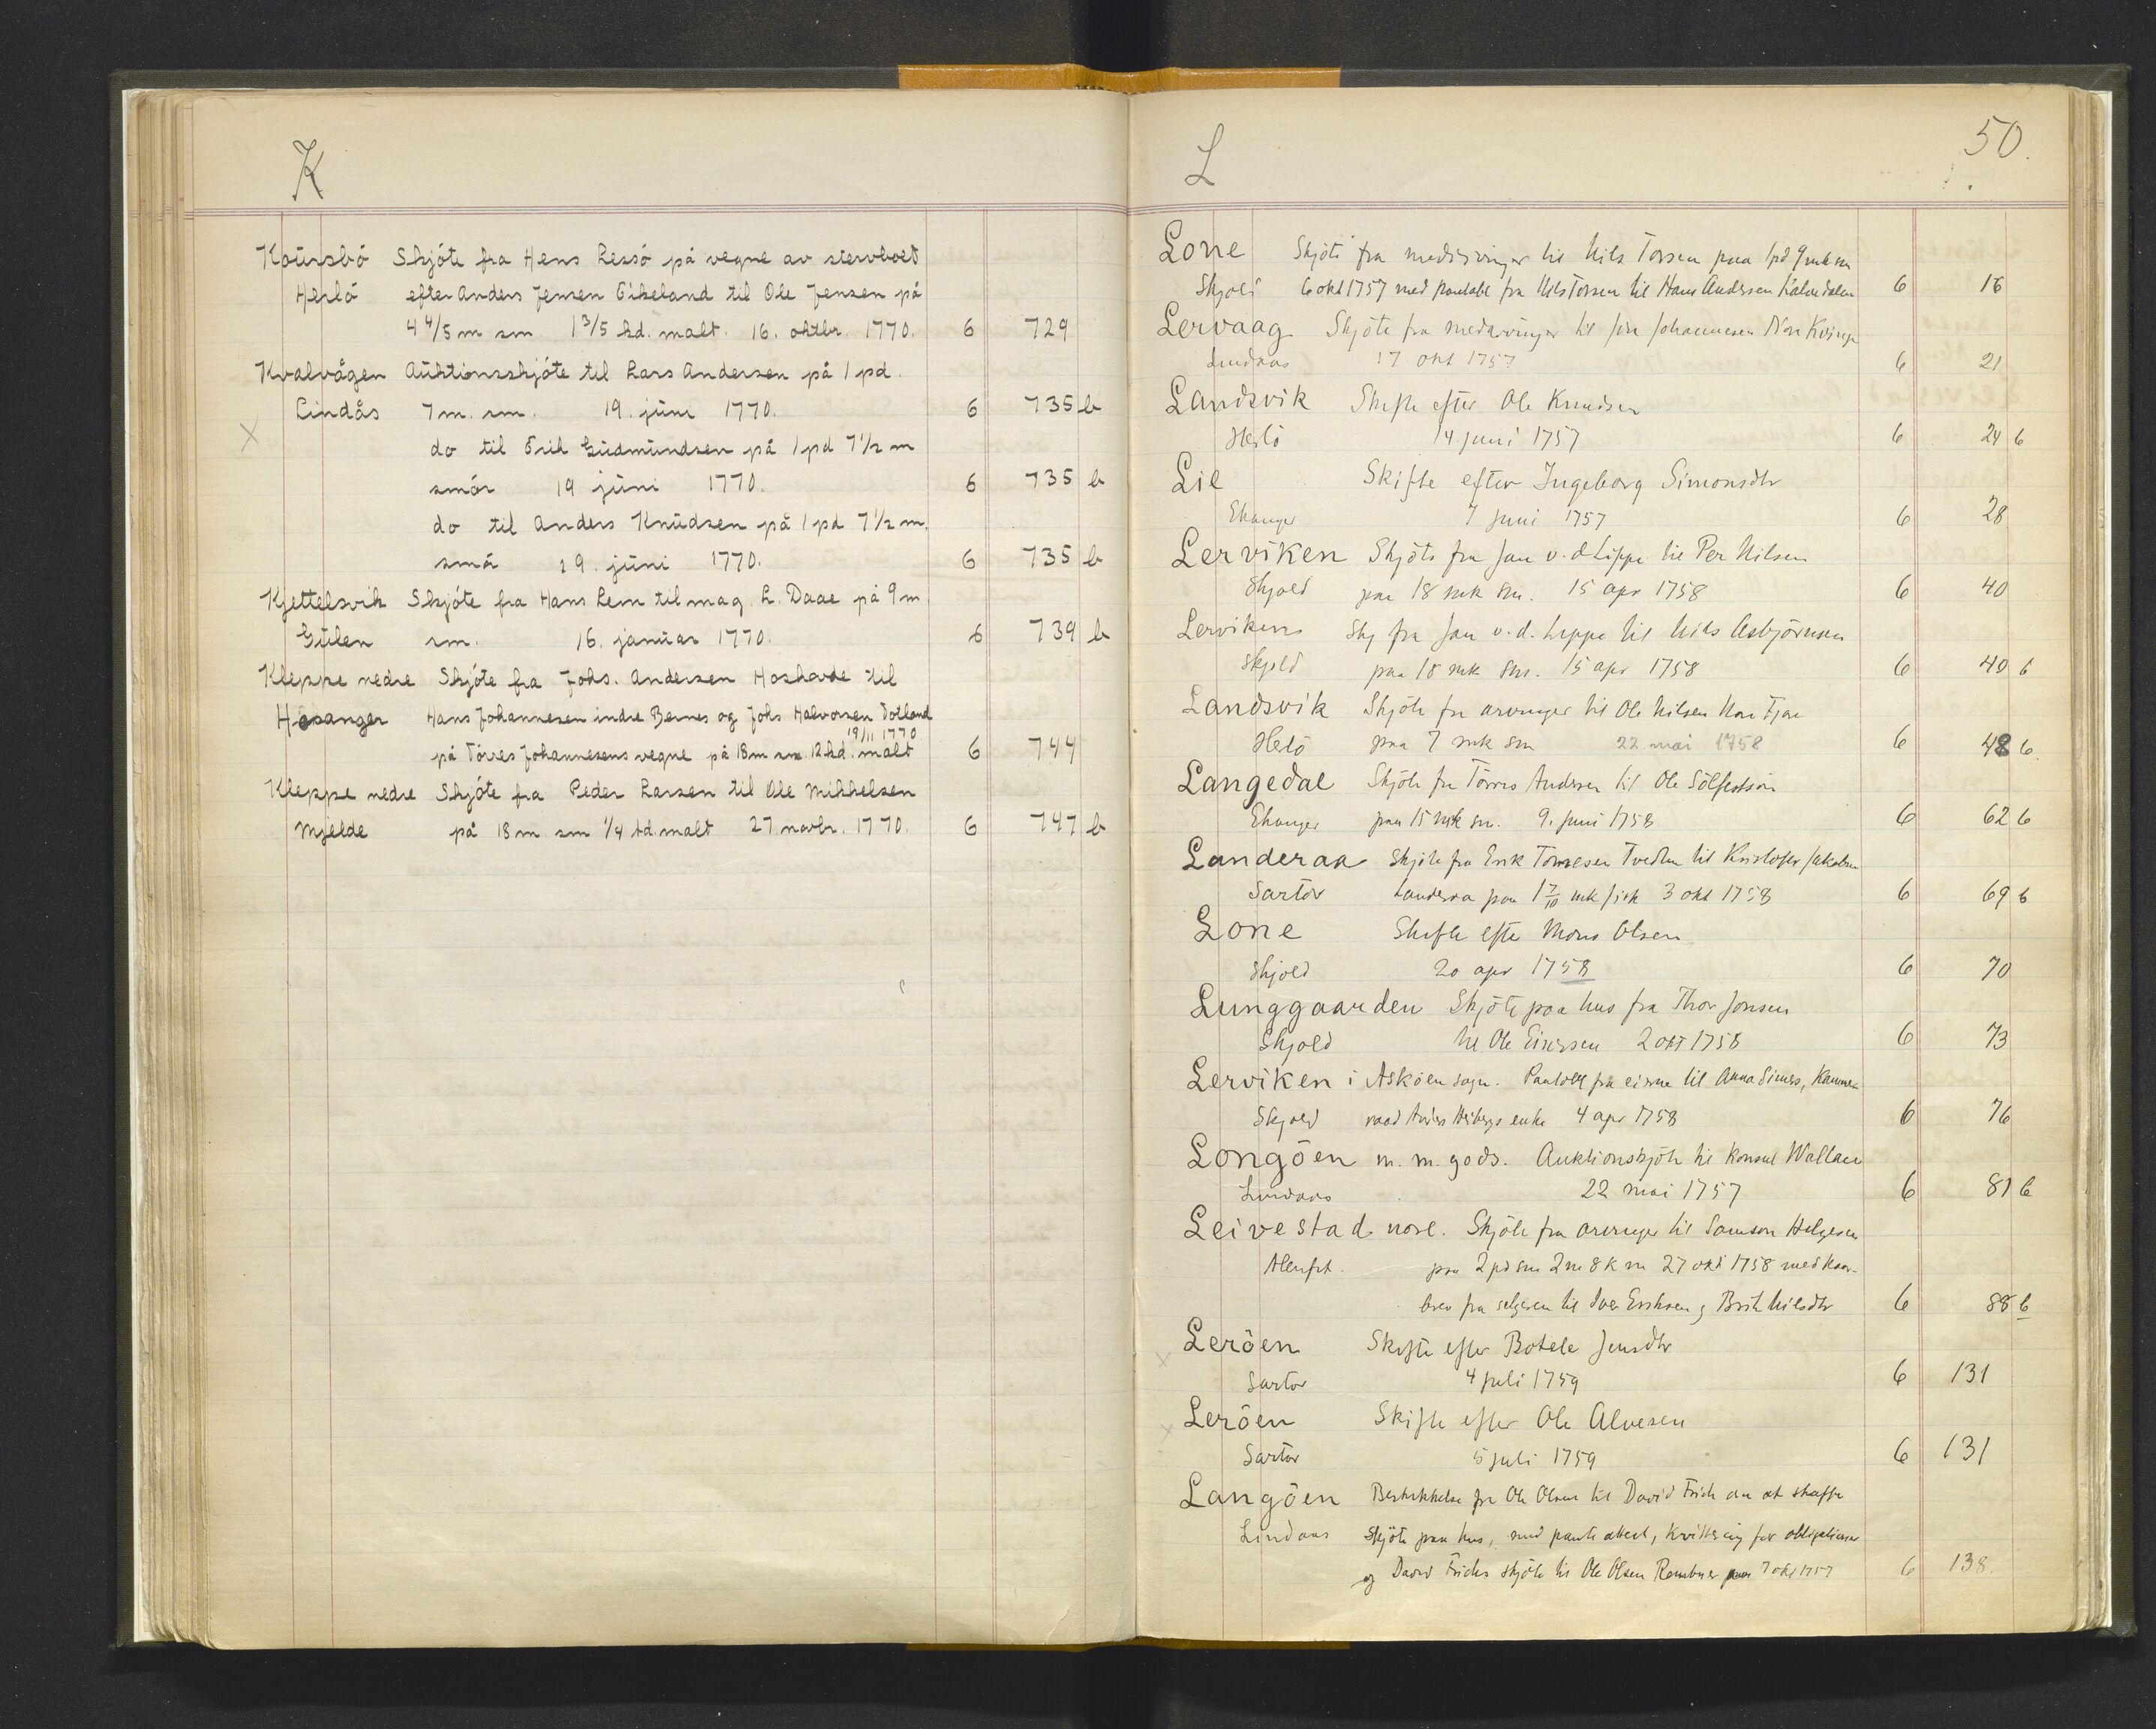 K
Kaursbö Skjöte fra Hens Lessö på vegne av stervboet
Herlö efter Anders Jensen Eikeland til Ole Jensen på
4 4/5 m sm. 1 3/5 hd. malt. 16. oktbr. 1770. 6 729
Kvalvågen Auktionsskjöte til Lars Andersen på 1 pd.
Lindås 7 m. sm. 19. juni 1770. 6 735 b
X do til Erik Gudmundsen på 1 pd 7 1/2 m
smör 19 juni 1770. 6 735 b
do til Anders Knudsen på 1 pd 7 1/2 m.
smö 19. juni 1770. 6 735 b
Kjettelsvik Skjöte fra Hans Lem til mag. L. Daae på 9 m
Gulen sm. 16. januar 1770. 6 739 b
Kleppe nedre Skjöte fra Johs. Andersen Hoshovde til
Hosanger Hans Johannesen indre Bernes og Johs Halvorsen Totland
19/11 1770
på Törres Johannesens vegne på 18 m sm. 12 kd. malt 6 744
Kleppe nedre Skjöte fra Peder Larsen til Ole Mikkelsen
Mjelde på 18 m sm 1/4 td. malt 27. novbr. 1770. 6 747 b
L 50.
Lone Skjöte fra medarvinger til Nils Torsen paa 1 pd 9 mk sm
Skjold 6 okt 1757 med pantobl fra Nils Torsen til Hans Andersen 6 16
Lervaag Skjöte fra medarvinger til Jon Johannesen
Lindaas 17 okt 1757 6 21
Landsvik Skifte efter Ole Knudsen
Herlö 14 juni 1757 6 24 b
Lie Skifte efter Ingeborg Simonsdtr
Ekanger 7 juni 1757 6 28
Lerviken Skjöte fra Jan v. d Lippe til Per Nilsen
Skjold paa 18 mk sm. 15 apr 1758 6 40
Lerviken Skj fra Jan v. d. Lippe til Nils Asbjörnsen
Skjold paa 18 mk sm. 15 apr 1758 6 40 b
Landsvik Skjöte fra arvinger til Ole Nilsen
Helö paa 7 mk sm 22 mai 1758 6 48 b
Langedal Skjöte fra Törres Andersen til Ole Sölfestson
Ekanger paa 15 mk sm. 9. juni 1758 6 62 b
Landeraa Skjöte fra Erik Tomesen til Kristofer Jakobsen
Sartor Landeraa paa 1 7/10 mk fisk 3 okt 1758 6 69 b
Lone Skifte efter Mons Olsen
Skjold 20 apr 1758 6 70
Lunggaarden Skjöte paa hus fra Thor Jonsen
Skjold til Ole 2 okt 1758 6 73
Lerviken i Asköen sogn. Pantobl fra eierne til Anna
Skjold 4 apr 1758 6 76
Longöen m. m. gods. Auktionskjöte til konsul Wallace
Lindaas 22 mai 1757 6 81 b
Leivestad nore. Skjöte fra arvinger til Samson Helgesen
Alenfit. paa 2 pd sm 2 27 okt 1758 med
brev fra selgeren til Iver Eriksen og Brite Nilsdtr 6 88 b
Leröen Skifte efter Botele Jensdtr
Sartor 4 juli 1759 6 131
Leröen Skifte efter Ole Alvesen
Sartor 5 juli 1759 6 131
Langöen fra Ole Olsen til David Frich om at skaffe
Lindaas Skjöte paa hus, med pante attest, kvittering for obligationer
og David Frichs skjöte til Ole Olsen 7 okt 1757 6 138.